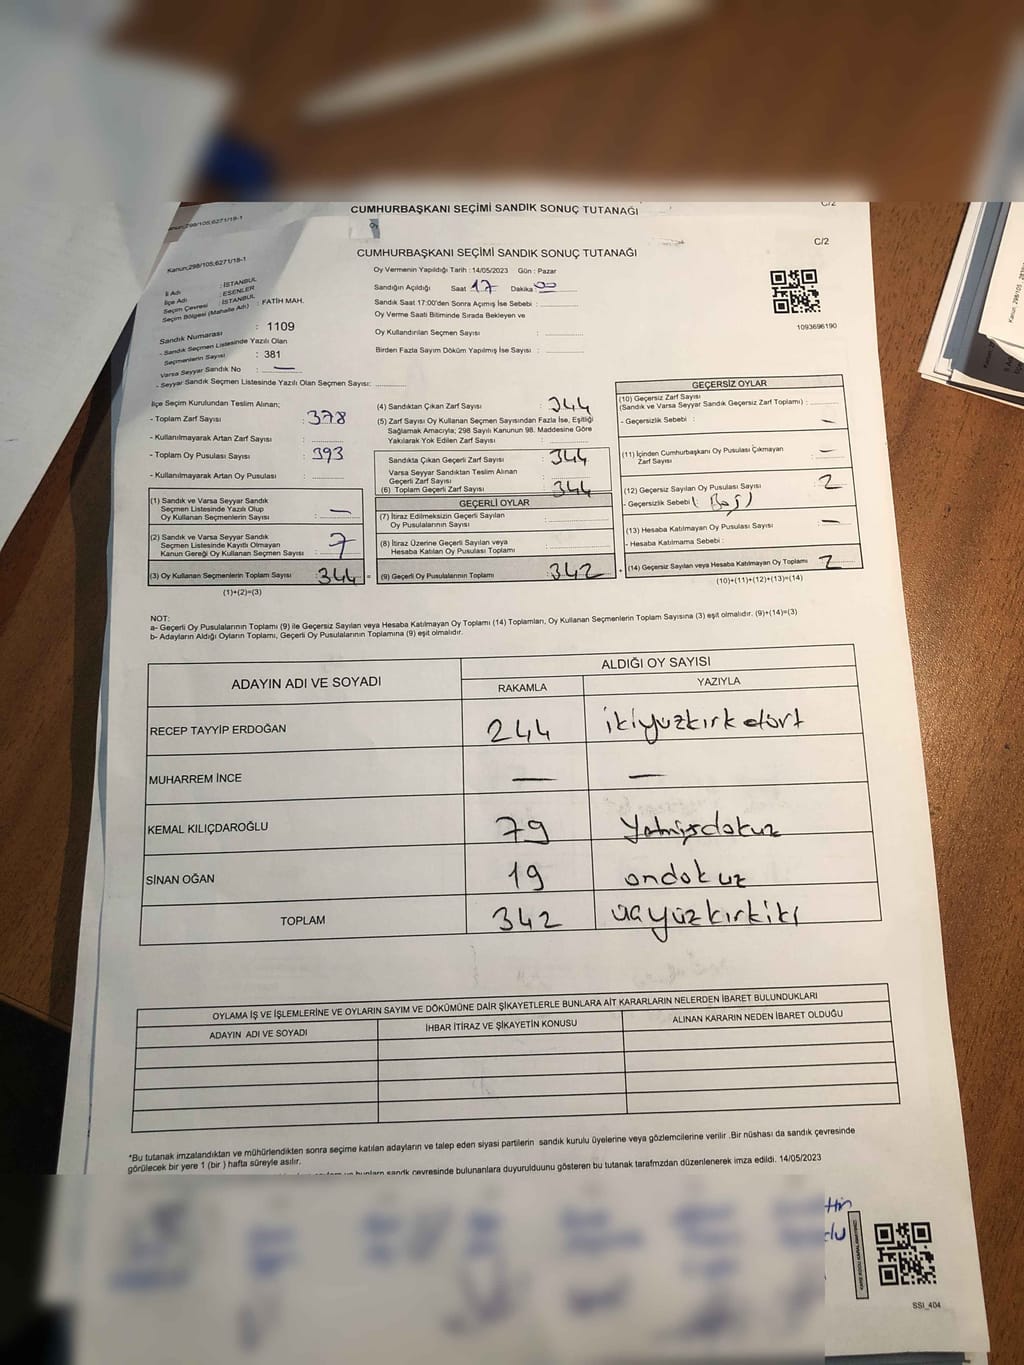 Kanun;298/105;6271/18-1
CUMHURBAŞKANI SEÇİMİ SANDIK SONUÇ TUTANAĞI
C/2
Kanun;298/105;6271/18-1
CUMHURBAŞKANI SEÇİMİ SANDIK SONUÇ TUTANAĞI
C/2
İl Adı : İSTANBUL
İlçe Adı : ESENLER
Seçim Çevresi : İSTANBUL
Seçim Bölgesi (Mahalle Adı) : FATİH MAH.
Sandık Numarası : 1109
- Sandık Seçmen Listesinde Yazılı Olan
Seçmenlerin Sayısı : 381
Varsa Seyyar Sandık No : —
- Seyyar Sandık Seçmen Listesinde Yazılı Olan Seçmen Sayısı:
Oy Vermenin Yapıldığı Tarih :14/05/2023 Gün : Pazar
Sandığın Açıldığı Saat 17 Dakika 00
Sandık Saat 17:00'den Sonra Açımış İse Sebebi :
Oy Verme Saati Bitiminde Sırada Bekleyen ve
Oy Kullandırılan Seçmen Sayısı :
Birden Fazla Sayım Döküm Yapılmış İse Sayısı :
1093696190
İlçe Seçim Kurulundan Teslim Alınan;
- Toplam Zarf Sayısı : 378
- Kullanılmayarak Artan Zarf Sayısı :
- Toplam Oy Pusulası Sayısı : 393
- Kullanılmayarak Artan Oy Pusulası :
(1) Sandık ve Varsa Seyyar Sandık
Seçmen Listesinde Yazılı Olup
Oy Kullanan Seçmenlerin Sayısı : —
(2) Sandık ve Varsa Seyyar Sandık
Seçmen Listesinde Kayıtlı Olmayan
Kanun Gereği Oy Kullanan Seçmen Sayısı : 7
(3) Oy Kullanan Seçmenlerin Toplam Sayısı : 344
(1)+(2)=(3)
(4) Sandıktan Çıkan Zarf Sayısı : 344
(5) Zarf Sayısı Oy Kullanan Seçmen Sayısından Fazla İse, Eşitliği
Sağlamak Amacıyla; 298 Sayılı Kanunun 98. Maddesine Göre
Yakılarak Yok Edilen Zarf Sayısı :
Sandıkta Çıkan Geçerli Zarf Sayısı : 344
Varsa Seyyar Sandıktan Teslim Alınan
Geçerli Zarf Sayısı :
(6) Toplam Geçerli Zarf Sayısı : 344
GEÇERLİ OYLAR
(7) İtiraz Edilmeksizin Geçerli Sayılan
Oy Pusulalarının Sayısı :
(8) İtiraz Üzerine Geçerli Sayılan veya
Hesaba Katılan Oy Pusulası Toplamı :
(9) Geçerli Oy Pusulalarının Toplamı : 342
GEÇERSİZ OYLAR
(10) Geçersiz Zarf Sayısı
(Sandık ve Varsa Seyyar Sandık Geçersiz Zarf Toplamı) :
- Geçersizlik Sebebi : —
(11) İçinden Cumhurbaşkanı Oy Pusulası Çıkmayan
Zarf Sayısı : —
(12) Geçersiz Sayılan Oy Pusulası Sayısı : 2
- Geçersizlik Sebebi
(13) Hesaba Katılmayan Oy Pusulası Sayısı : —
- Hesaba Katılmama Sebebi :
(14) Geçersiz Sayılan veya Hesaba Katılmayan Oy Toplamı : 2
(10)+(11)+(12)+(13)=(14)
NOT:
a- Geçerli Oy Pusulalarının Toplamı (9) ile Geçersiz Sayılan veya Hesaba Katılmayan Oy Toplamı (14) Toplamları, Oy Kullanan Seçmenlerin Toplam Sayısına (3) eşit olmalıdır. (9)+(14)=(3)
b- Adayların Aldığı Oyların Toplamı, Geçerli Oy Pusulalarının Toplamına (9) eşit olmalıdır.
ADAYIN ADI VE SOYADI
ALDIĞI OY SAYISI
RAKAMLA YAZIYLA
RECEP TAYYİP ERDOĞAN 244 ikiyüzkırkdört
MUHARREM İNCE — —
KEMAL KILIÇDAROĞLU 79 Yetmişdokuz
SİNAN OĞAN 19 ondokuz
TOPLAM 342 üçyüzkırkiki
OYLAMA İŞ VE İŞLEMLERİNE VE OYLARIN SAYIM VE DÖKÜMÜNE DAİR ŞİKAYETLERLE BUNLARA AİT KARARLARIN NELERDEN İBARET BULUNDUKLARI
ADAYIN ADI VE SOYADI İHBAR İTİRAZ VE ŞİKAYETİN KONUSU ALINAN KARARIN NEDEN İBARET OLDUĞU
*Bu tutanak imzalandıktan ve mühürlendikten sonra seçime katılan adayların ve talep eden siyasi partilerin sandık kurulu üyelerine veya gözlemcilerine verilir .Bir nüshası da sandık çevresinde
görülecek bir yere 1 (bir ) hafta süreyle asılır.
sandk çevresinde bulunanlara duyurulduunu gösteren bu tutanak tarafmzdan düzenlenerek imza edildi. 14/05/2023
SSI_404